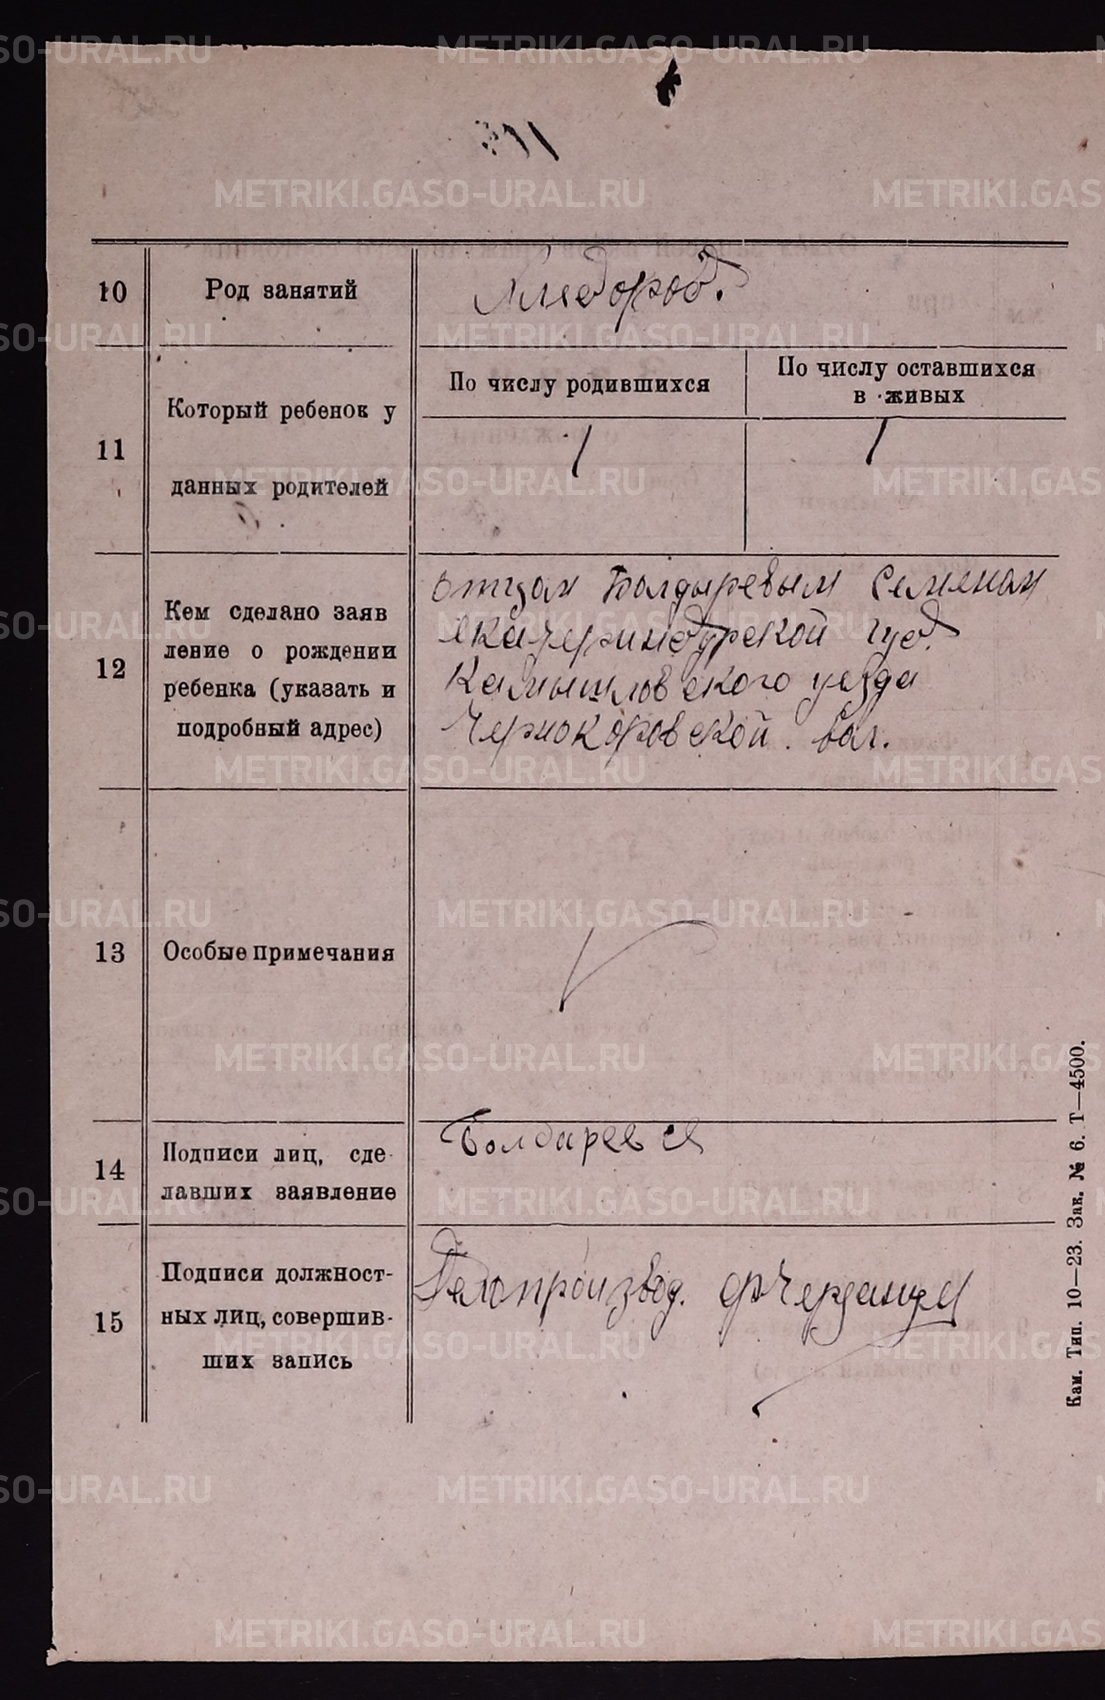 10 Род занятий Хлебороб.
11 Который ребенок у данных родителей
По числу родившихся
По числу оставшихся
в живых
1 1
12 Кем сделано заяв
ление о рождении
ребенка (указать и
подробный адрес)
отцом Болдыревым Семеном
Екатеринбургской губ.
Камышловского уезда
Чернокоровской вол.
13 Особые примечания
14 Подписи лиц, сде-
лавших заявление
Болдырев
15 Подписи должност-
ных лиц, совершив-
ших запись
Делопроизвод.
Кам. Тип. 10—23. Зак. № 6. Т—4500.
METRIKI.GASO-URAL.RU